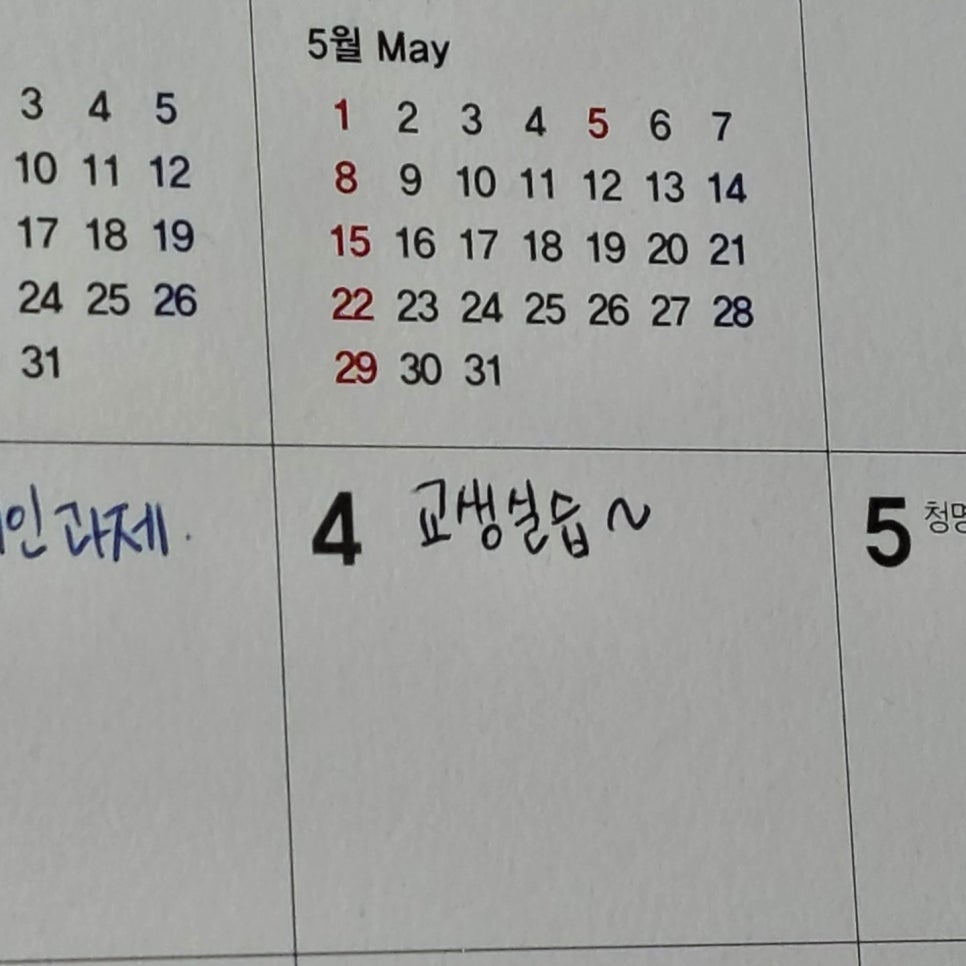 5월 May
3 4 5
10 11 12
17 18 19
24 25 26
31
1 2 3 4 5 6 7
8 9 10 11 12 13 14
15 16 17 18 19 20 21
22 23 24 25 26 27 28
29 30 31
인과제.
4 교생실습~
5 청명